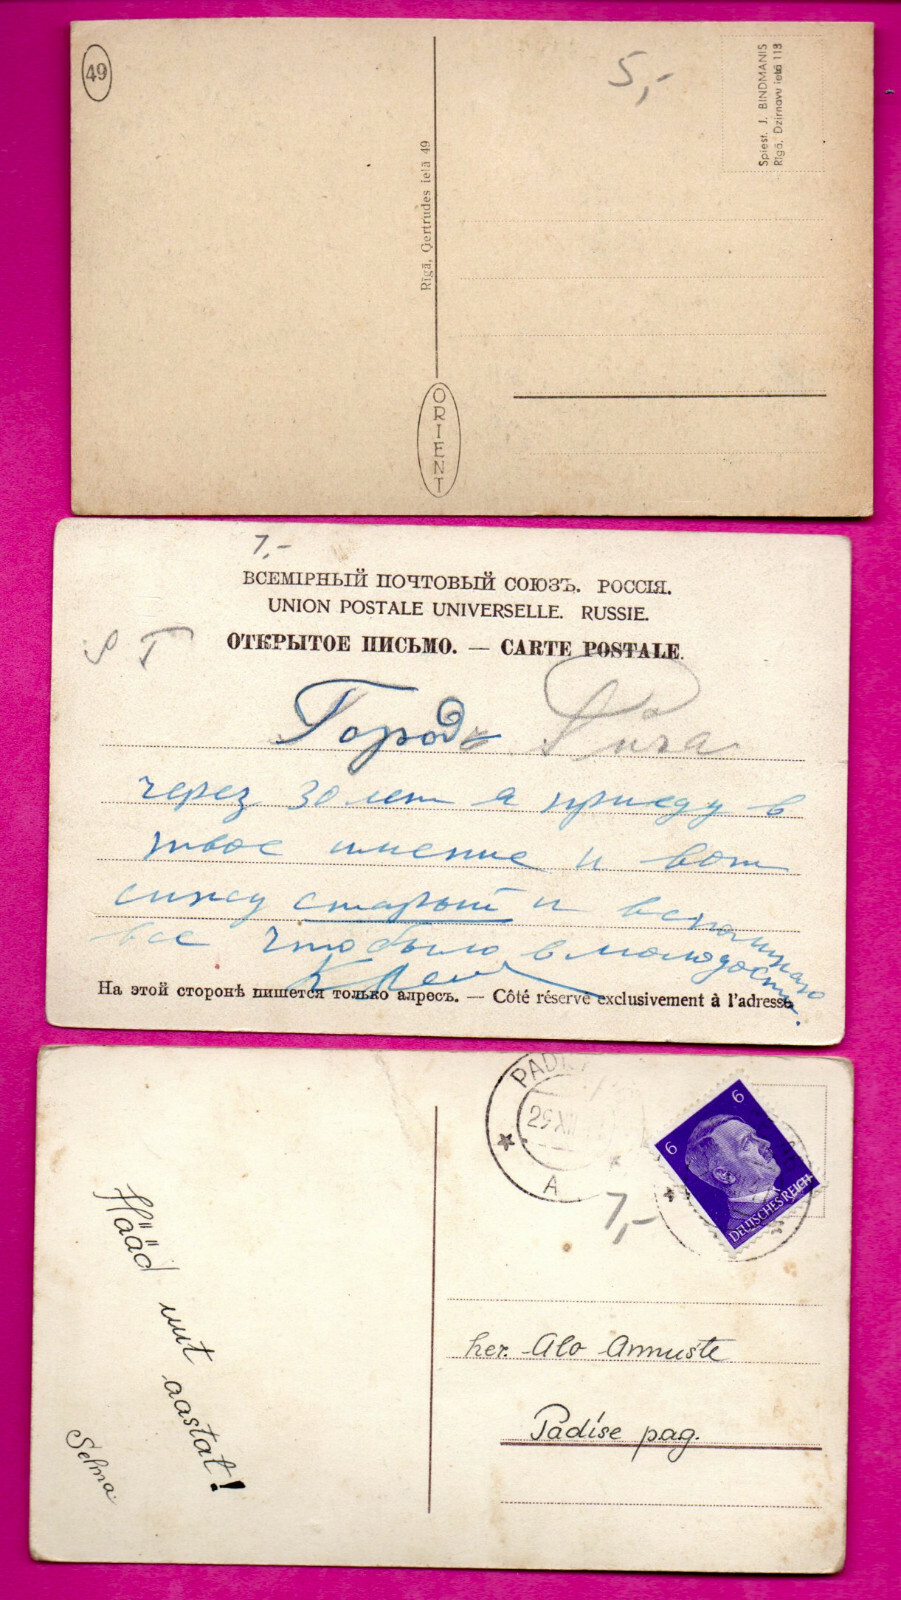 49
5,-
Spiest. J. BINDMANIS
Rīgā, Dzirnavu ielā 113
Rīgā, Ģertrudes ielā 49
ORIENT
7,-
ВСЕМІРНЫЙ ПОЧТОВЫЙ СОЮЗЪ. РОССІЯ.
UNION POSTALE UNIVERSELLE. RUSSIE.
ОТКРЫТОЕ ПИСЬМО. — CARTE POSTALE.
Городъ Рига
через 30 лет я приеду в
твое имение и вот
сижу старый и вспоминаю
все что было в молодости.
На этой сторонѣ пишется только адресъ. — Côté réservé exclusivement à l'adresse.
PADI
29 XII
A
6 6
DEUTSCHES REICH
7,-
Hääd uut aastat!
Selma
her. Alo Annuste
Padise pag.